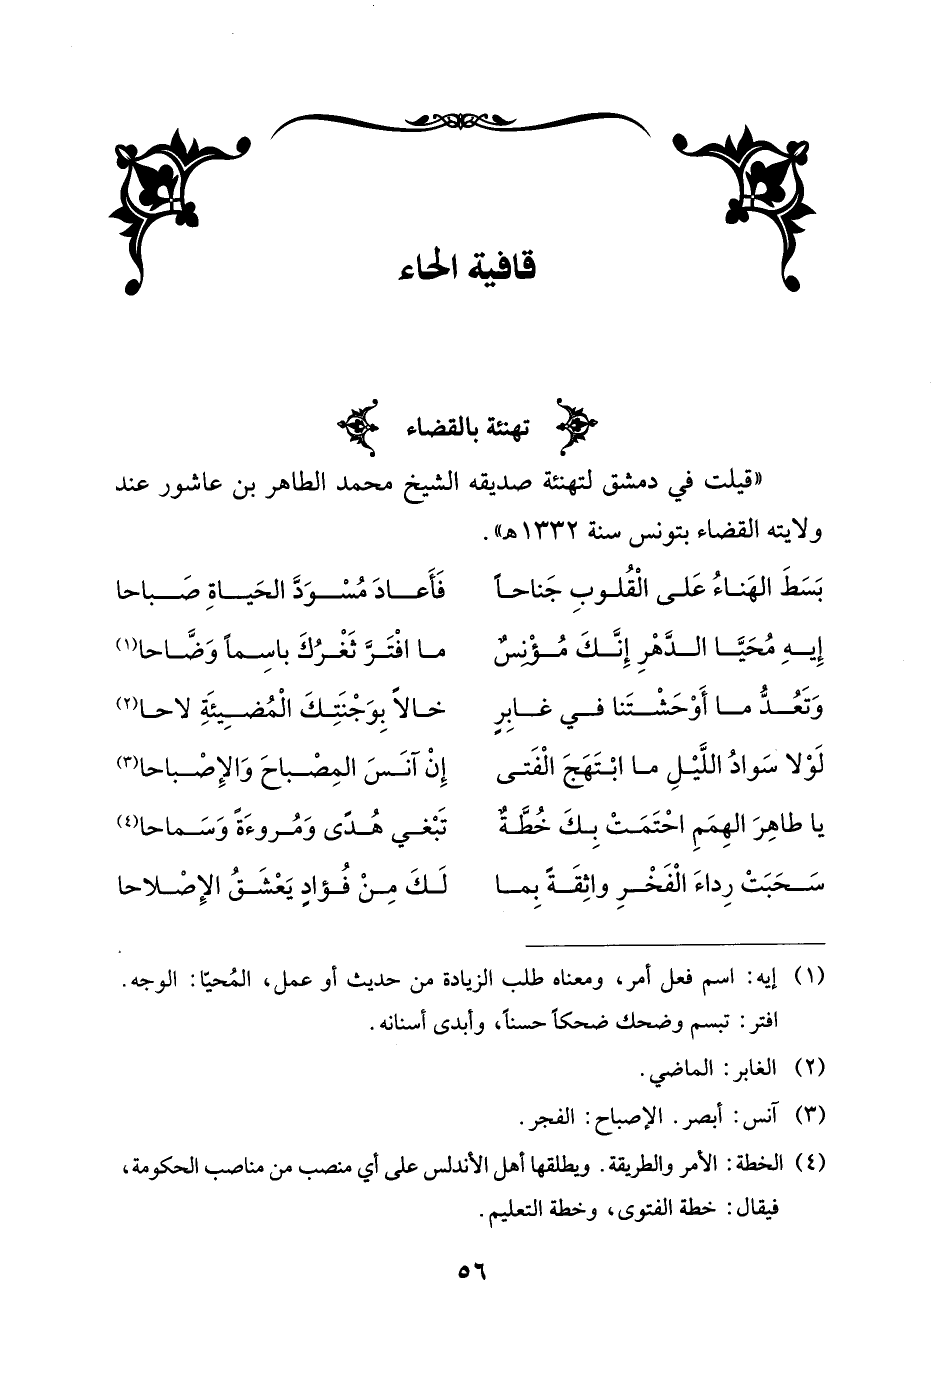 قافية الحاء
تهنئة بالقضاء
«قيلت في دمشق لتهنئة صديقه الشيخ محمد الطاهر بن عاشور عند
ولايته القضاء بتونس سنة ١٣٣٢هـ».
بَسَطَ الهَناءُ عَلى الْقُلوبِ جَناحاً فَأَعادَ مُسْوَدَّ الحَياةِ صَباحا
إيهِ مُحَيَّا الدَّهْرِ إنَّكَ مُؤْنِسٌ ما افْتَرَّ ثَغْرُكَ باسِماً وَضَّاحا(١)
وَتَعُدُّ ما أَوْحَشْتَنا في غابِرٍ خالاً بِوَجْنَتِكَ الْمُضيئَةِ لاحا(٢)
لَوْلا سَوادُ اللَّيْلِ ما ابْتَهَجَ الْفَتى إنْ آنَسَ المِصْباحَ وَالإصْباحا(٣)
يا طاهِرَ الهِمَمِ احْتَمَتْ بِكَ خُطَّةٌ تَبْغي هُدًى وَمُروءَةً وَسَماحا(٤)
سَحَبَتْ رِداءَ الْفَخْرِ واثِقَةً بِما لَكَ مِنْ فُؤادٍ يَعْشَقُ الإصْلاحا
(١) إيه: اسم فعل أمر، ومعناه طلب الزيادة من حديث أو عمل، المُحيّا: الوجه.
افتر: تبسم وضحك ضحكاً حسناً، وأبدى أسنانه.
(٢) الغابر: الماضي.
(٣) آنس: أبصر. الإصباح: الفجر.
(٤) الخطة: الأمر والطريقة. ويطلقها أهل الأندلس على أي منصب من مناصب الحكومة،
فيقال: خطة الفتوى، وخطة التعليم.
٥٦